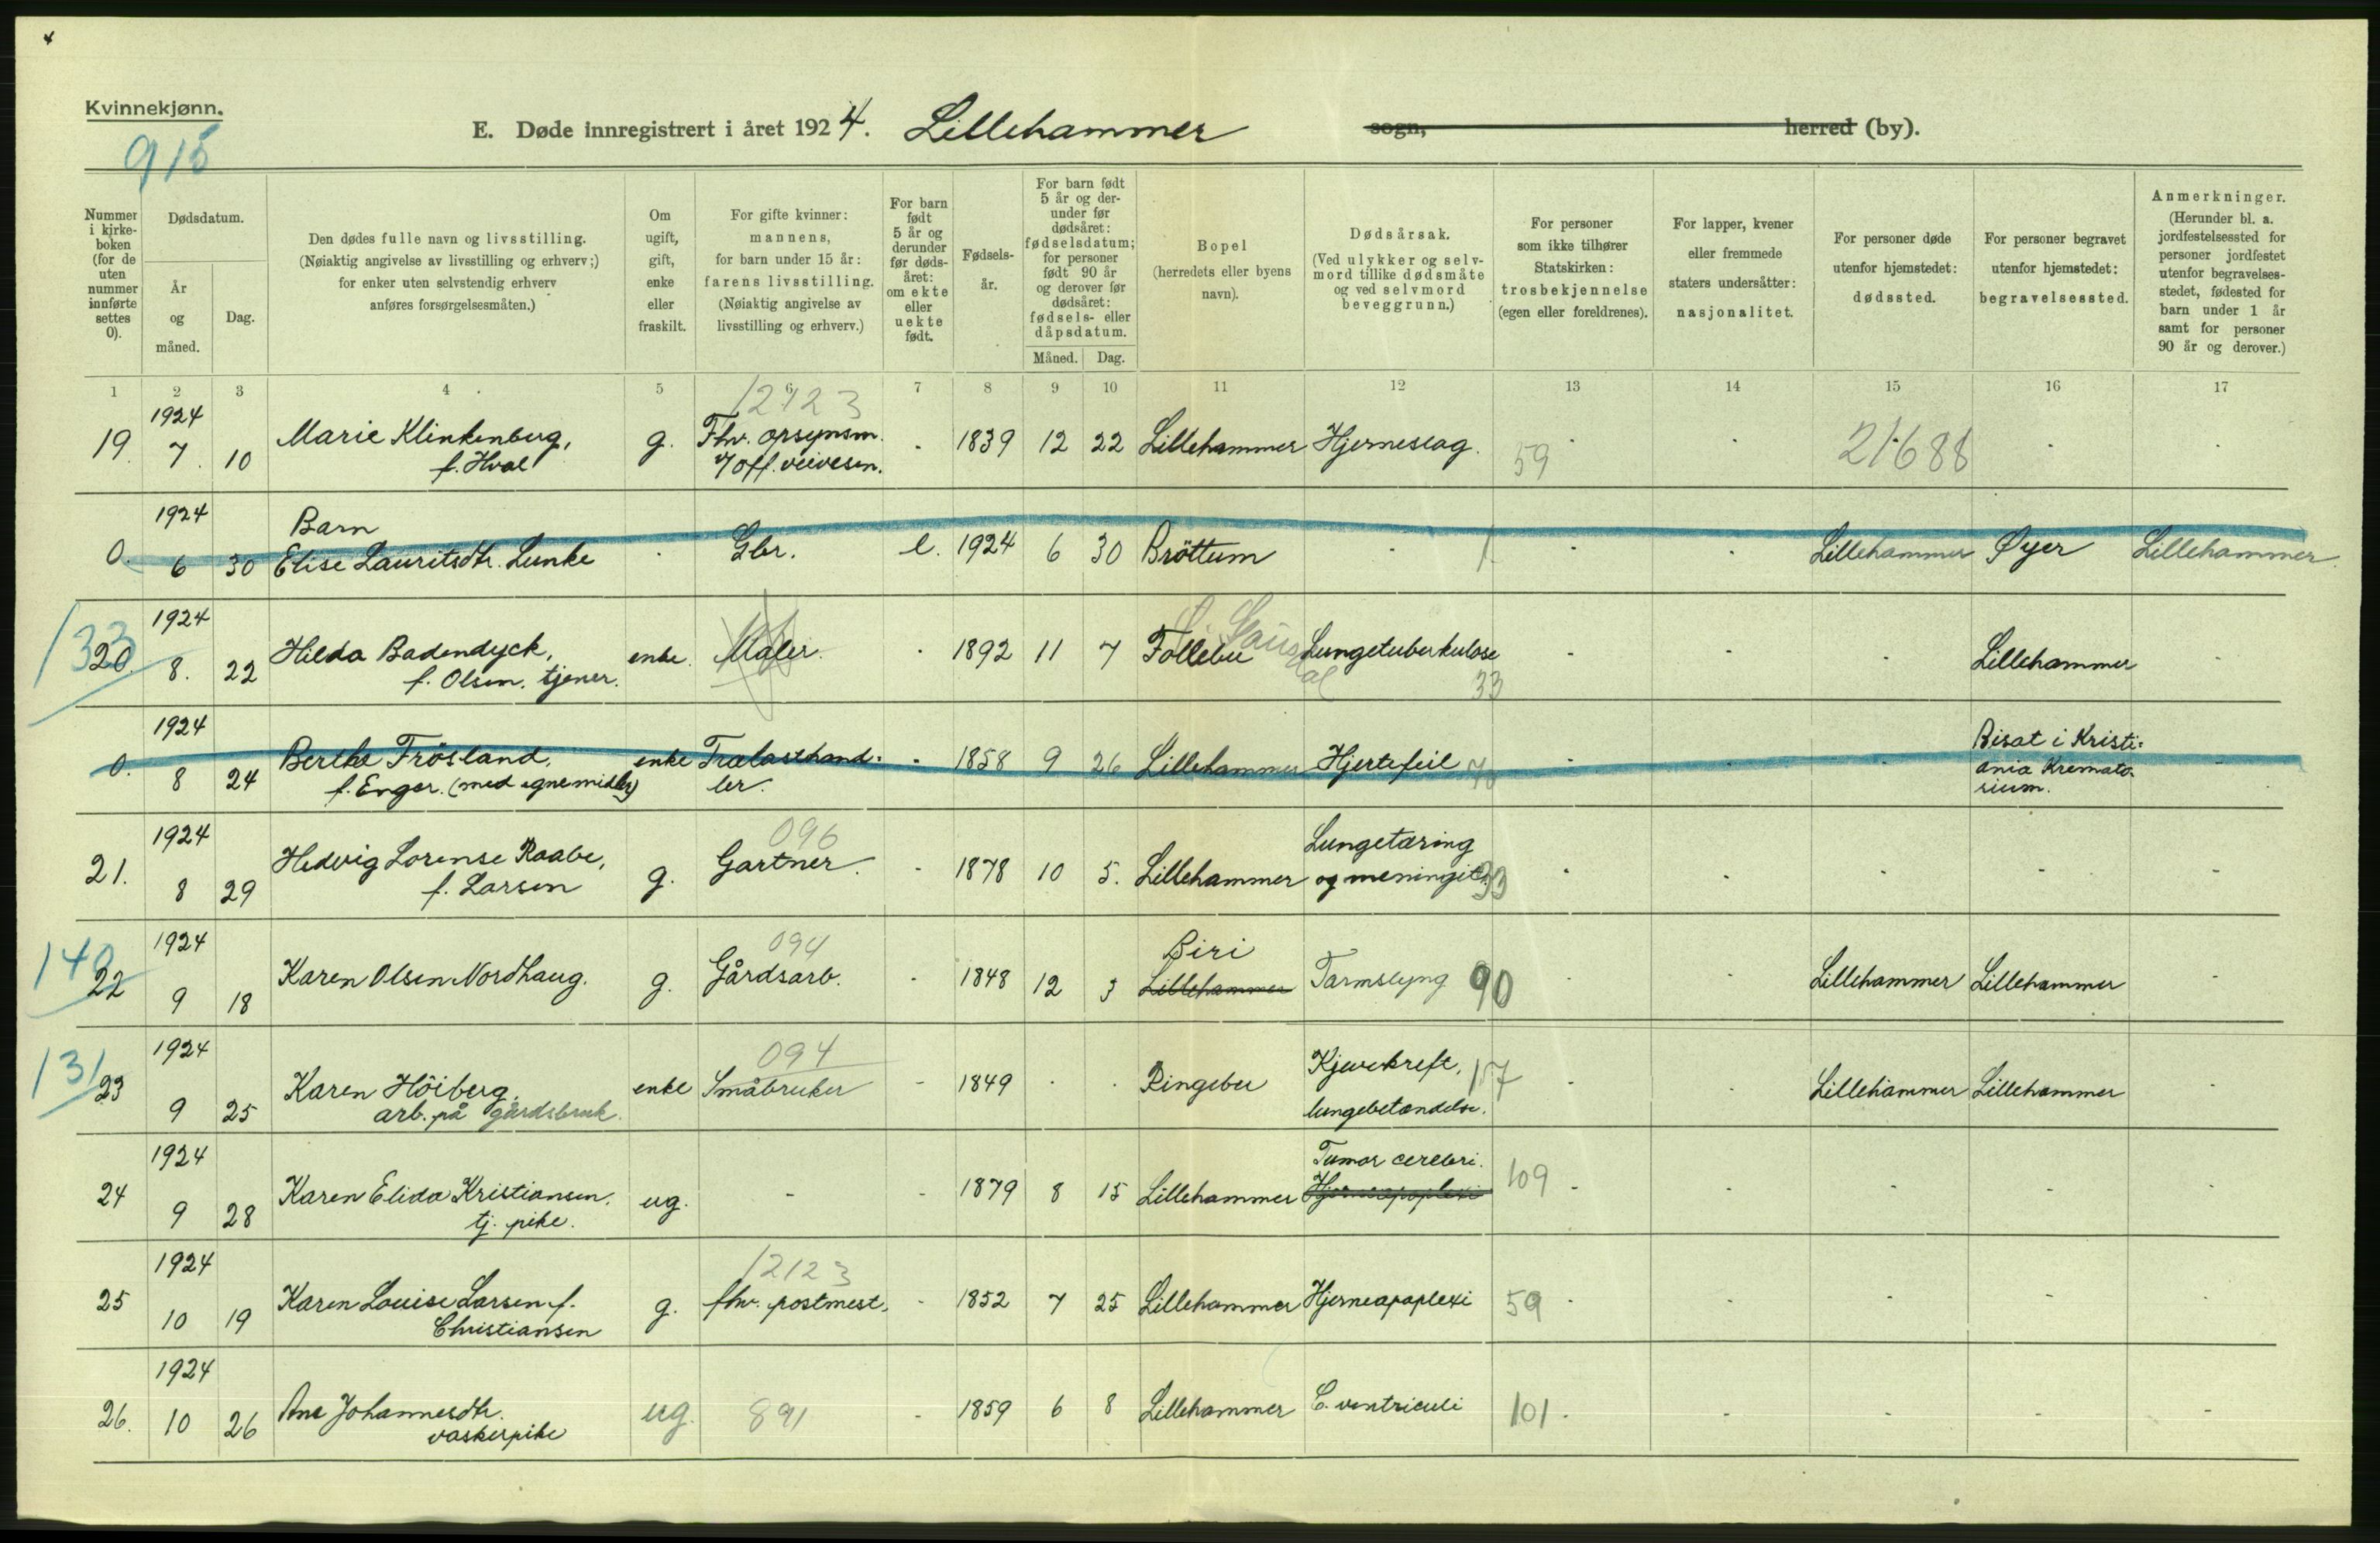 Kvinnekjønn.
915
E. Døde innregistrert i året 1924. Lillehammer sogn, herred (by).
Nummer i kirkeboken (for de uten nummer innførte settes 0).
Dødsdatum.
År og måned.
Dag.
Den dødes fulle navn og livsstilling. (Nøiaktig angivelse av livsstilling og erhverv;) for enker uten selvstendig erhverv anføres forsørgelsesmåten.)
Om ugift, gift, enke eller fraskilt.
For gifte kvinner: mannens, for barn under 15 år: farens livsstilling. (Nøiaktig angivelse av livsstilling og erhverv.)
For barn født 5 år og derunder før dødsåret: om ekte eller uekte født.
Fødselsår.
For barn født 5 år og derunder før dødsåret: fødselsdatum; for personer født 90 år og derover før dødsåret: fødsels- eller dåpsdatum.
Måned. Dag.
Bopel (herredets eller byens navn).
Dødsårsak. (Ved ulykker og selvmord tillike dødsmåte og ved selvmord beveggrunn.)
For personer som ikke tilhører Statskirken: trosbekjennelse (egen eller foreldrenes).
For lapper, kvener eller fremmede staters undersåtter: nasjonalitet.
For personer døde utenfor hjemstedet: dødssted.
For personer begravet utenfor hjemstedet: begravelsessted.
Anmerkninger. (Herunder bl. a. jordfestelsessted for personer jordfestet utenfor begravelsesstedet, fødested for barn under 1 år samt for personer 90 år og derover.)
1 2 3 4 5 6 7 8 9 10 11 12 13 14 15 16 17
12123
19. 1924 7. 10 Marie Klinkenberg, f. Hval g. Fhv. opsynsm. v/ off. veivesen. - 1839 12 22 Lillehammer Hjerneslag. 59 21688
0. 1924 6 30 Barn Elise Lauritsdtr. Lunke Gbr. e. 1924 6 30 Brøttum Lillehammer Øyer Lillehammer.
133
20. 1924 8. 22 Hilda Badendyck, f. Olsen. tjener. enke. Maler. 1892 11 7 Follebu Lungetuberkulose 33 Lillehammer
0. 1924 8 24 Berthe Frösland, f. Enger. (med egne midler) enke Trælasthandler. 1858 9 26 Lillehammer Hjertefeil Bisat i Kristiania Krematorium.
096
21. 1924 8 29 Hedvig Lorense Raabe, f. Larsen g. Gartner. 1878 10 5. Lillehammer Lungetæring og meningit. 33
140
094
22 1924 9 18 Karen Olsen Nordhaug. g. Gårdsarb. 1848 12 3 Biri Lillehammer Tarmslyng 90 Lillehammer Lillehammer
131
094
23 1924 9 25 Karen Höiberg, arb. på gårdsbruk. enke Småbruker 1849 Ringebu Kjevekreft, lungebetændelse. 107 Lillehammer Lillehammer
24 1924 9 28 Karen Elida Kristiansen. tj. pike. ug. - 1879 8 15 Lillehammer Tumor cerebri. Hjerneapoplexi 109
12123
25 1924 10 19 Karen Louise Larsen f. Christiansen g. fhv. postmest. 1852 7 25 Lillehammer Hjerneapoplexi 59
26. 1924 10 26 Ane Johannesdtr. vaskerpike ug. 891 1859 6 8 Lillehammer C. ventriculi 101